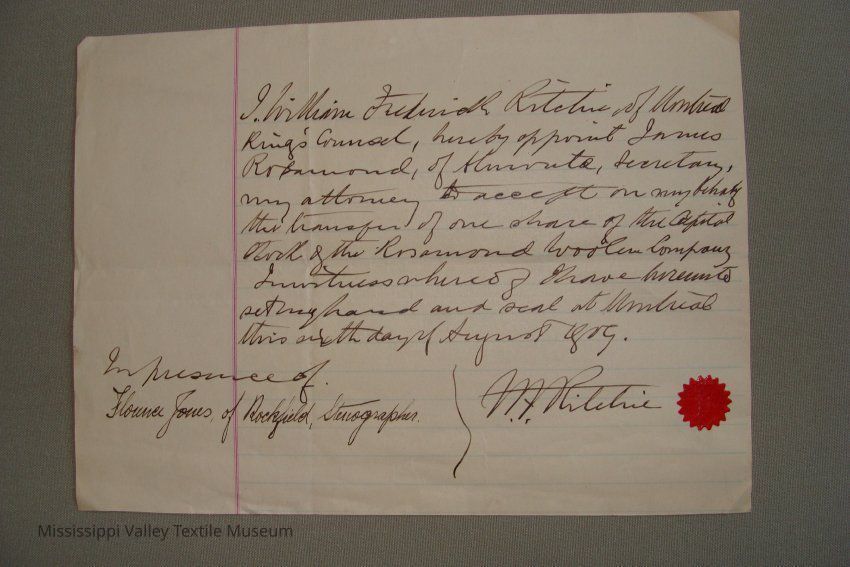 I, William Frederick Ritchie, of Montreal
King's Counsel, hereby appoint James
Rosamond, of Almonte, Secretary,
my attorney to accept on my behalf
the transfer of one share of the Capital
Stock of the Rosamond Woolen Company
In witness whereof I have hereunto
set my hand and seal at Montreal
this sixth day of August 1909.
In presence of.
Florence Jones, of Rockfield, Stenographer.
W.F. Ritchie
Mississippi Valley Textile Museum